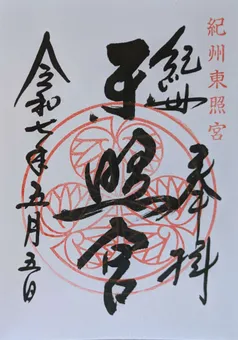 紀州東照宮
奉拝
紀州
東照宮
令和七年五月五日